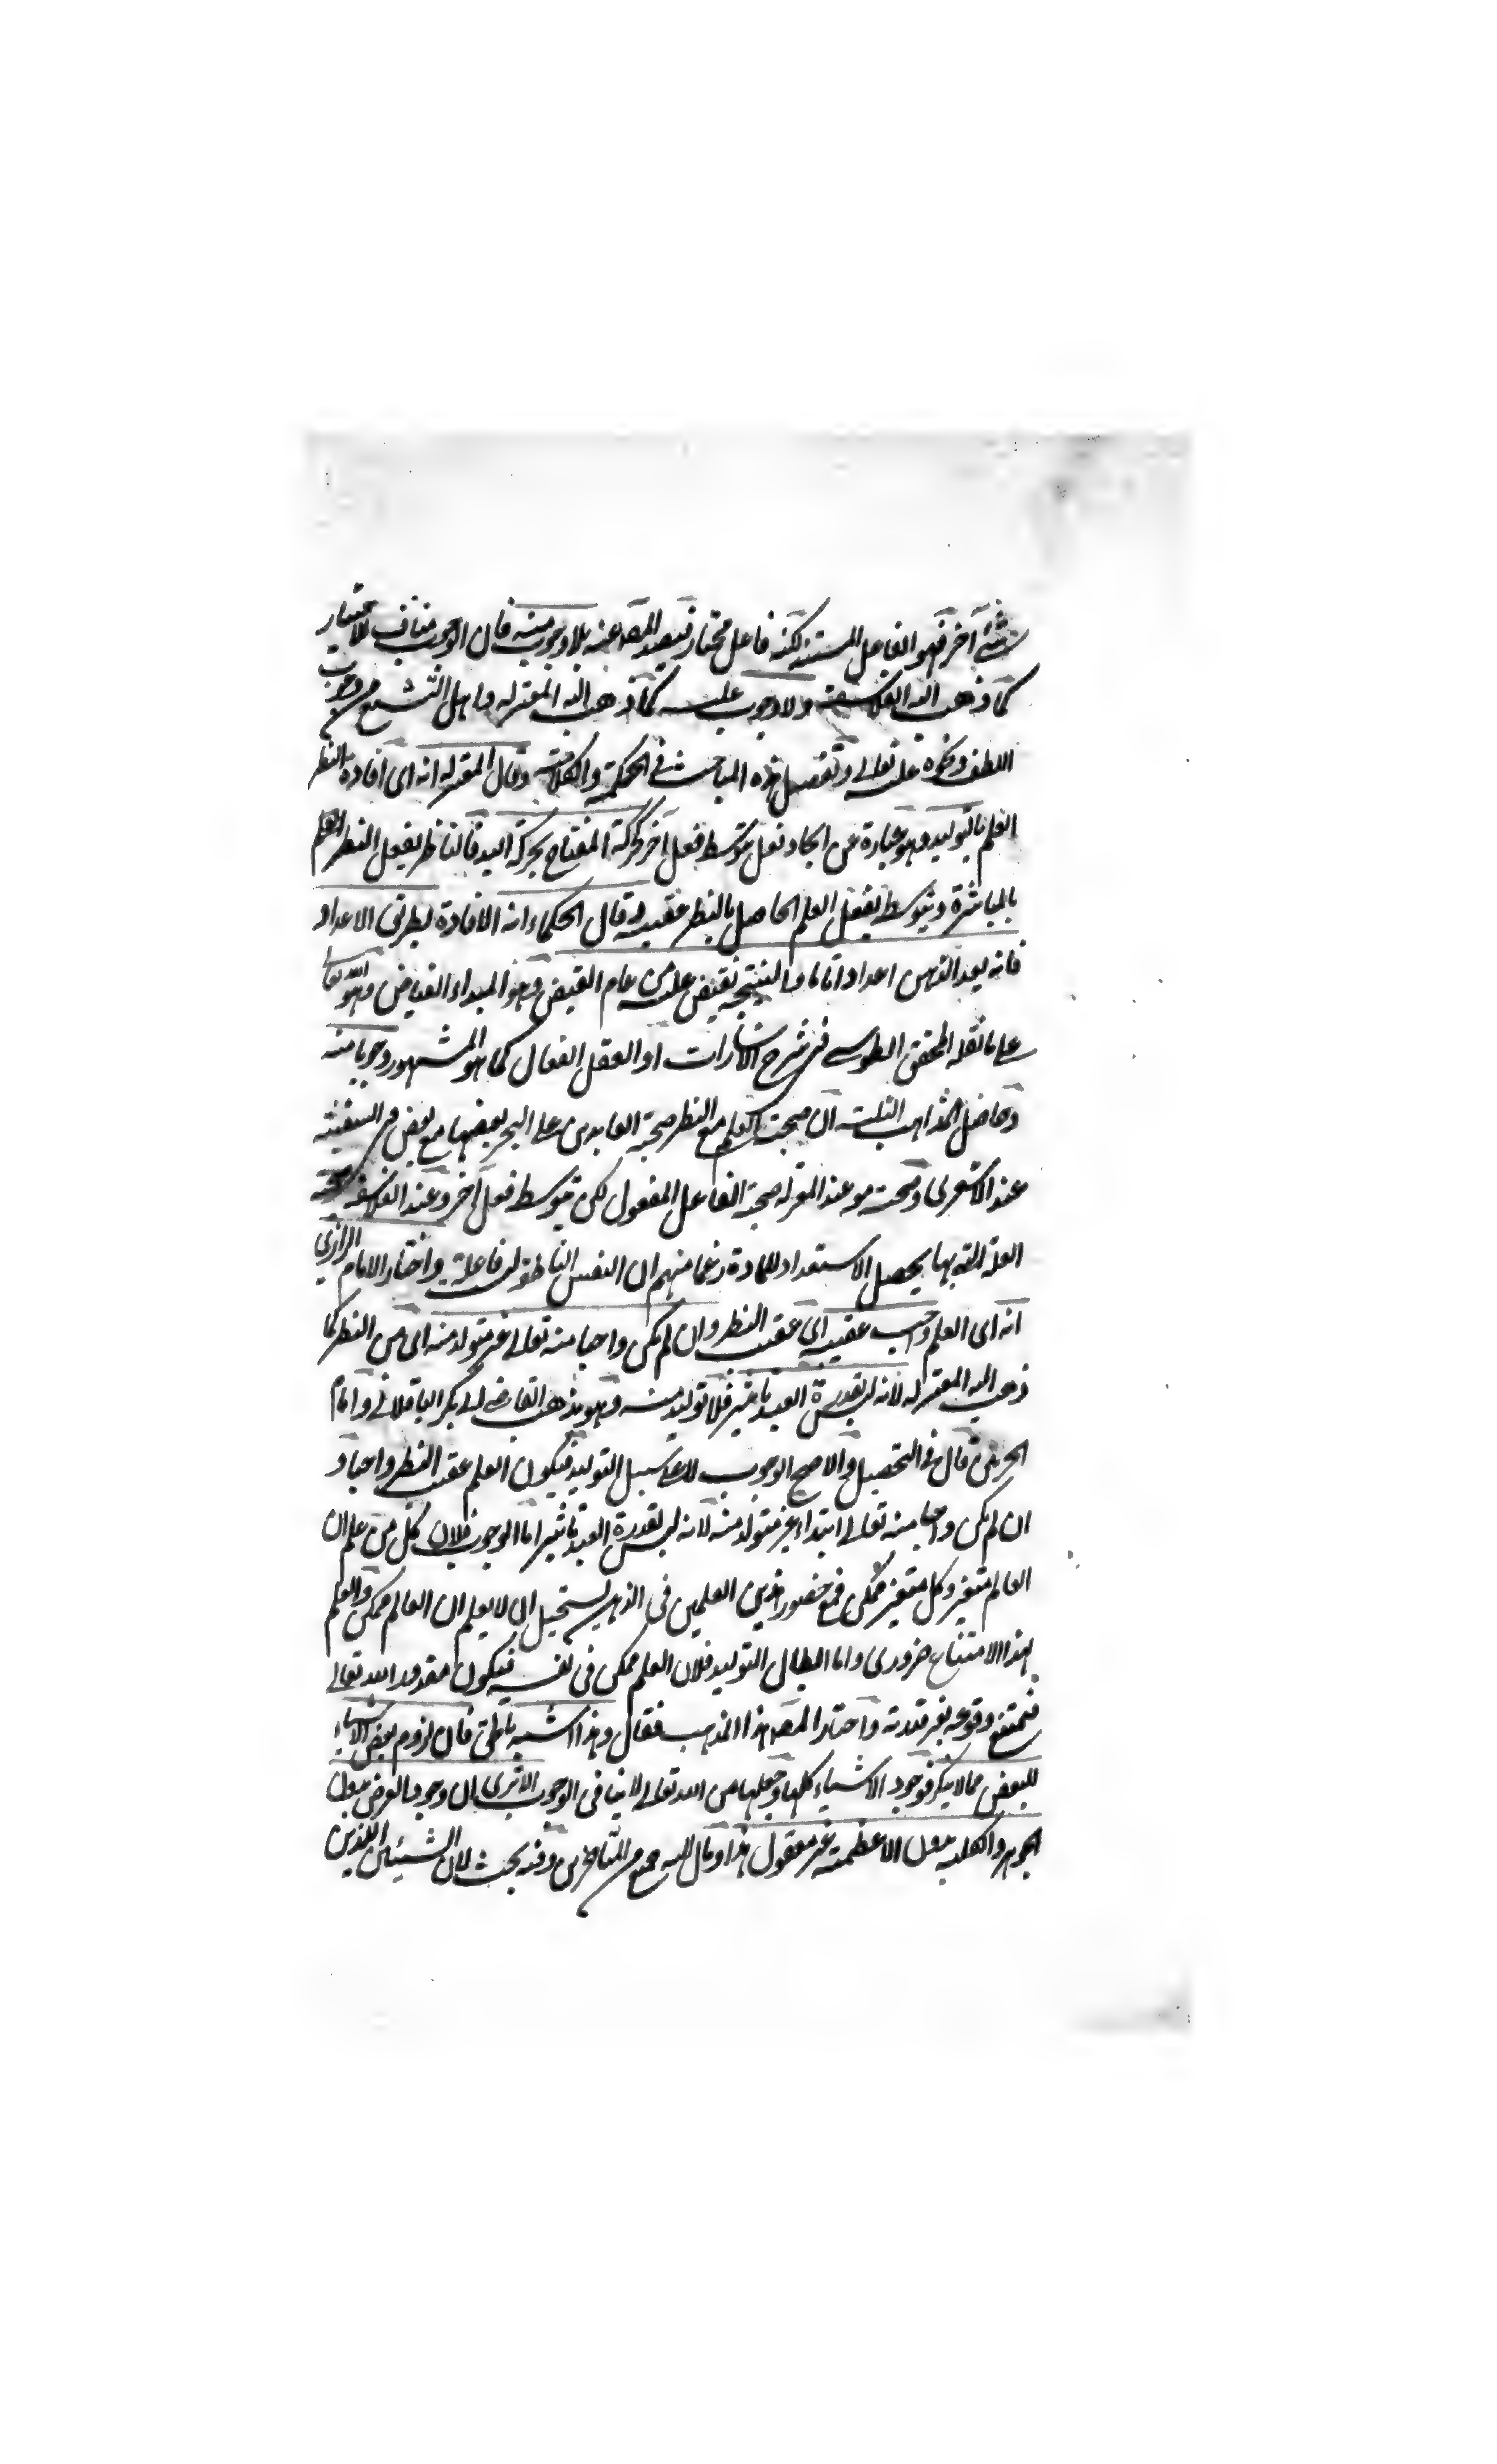 شئ آخر فهو الفاعل المستند لكنه فاعل مختار فيصدر العلم عنه بلا وجوب منه فان الوجوب مناف للاختيار
كما ذهب اليه الفلاسفة ولا وجوب عليه كما ذهب اليه المعتزله واهل التشيع من وجوب
اللطف ونحوه عليه تعالى وتفصيل هذه المباحث في الحكمة والكلام وقال المعتزله انه اى افادة النظر
العلم بالتوليد وهو عبارة عن ايجاد فعل بتوسط فعل آخر كحركة المفتاح بحركة اليد فالناظر يفعل النظر
بالمباشرة وبتوسطه يفعل العلم الحاصل بالنظر عقيبه وقال الحكماء انه الافادة بطريق الاعداد
فانه يعد الذهن اعدادا تاما والنتيجة تفيض عليه من عام الفيض وهو المبداء الفياض وهو الله تعالى
على ما نقله المحقق الطوسى فى شرح الاشارات او العقل الفعال كما هو المشهور وجوبا منه
وحاصل المذاهب الثلثه ان صحبة العلم مع النظر صحبة العابرين على البحر بعضها مع بعض فى السفينة
عند الاشعرى وصحبته معه عند المعتزله صحبة الفاعل المفعول لكن بتوسط فعل آخر وعند الفلاسفه صحبة
العلة التى بها يحصل الاستعداد للمادة زعما منهم ان النفس الناطقة ليست فاعلة واختار الامام الرازى
انه اى العلم واجب عقيبه اى عقيب النظر وان لم يكن واجبا منه تعالى غير متولد منه اى من النظر كما
ذهب اليه المعتزله لانه ليس لقدرة العبد تاثير فلا توليد منه وهو مذهب القاضى ابى بكر الباقلانى وامام
الحرمين قال فى التحصيل والاصح الوجوب لا على سبيل التوليد فيكون العلم عقيب النظر واجبا و
ان لم يكن واجبا منه تعالى ابتداء غير متولد منه لانه ليس لقدرة العبد تاثير اما الوجوب فلان كل من علم ان
العالم متغير وكل متغير ممكن فمع حضور هذين العلمين فى الذهن يستحيل ان لا يعلم ان العالم ممكن والعلم
بهذا الامتناع ضرورى واما ابطال التوليد فلان العلم ممكن فى نفسه فيكون مقدور الله تعالى
فيمتنع وقوعه بغير قدرته واختار المصنف هذا المذهب فقال وهذا اشبه باطق فان لزوم بعض الاشياء
للبعض مما لا ينكر فوجود الاشياء كلها وجعلها من الله تعالى لا ينافى الوجوب الاترى ان وجود العرض بدون
الجوهر والكليه بدون الاعظمية غير معقول هذا ومال اليه جمع من المتاخرين وفيه بحث لان الشيئين اللذين